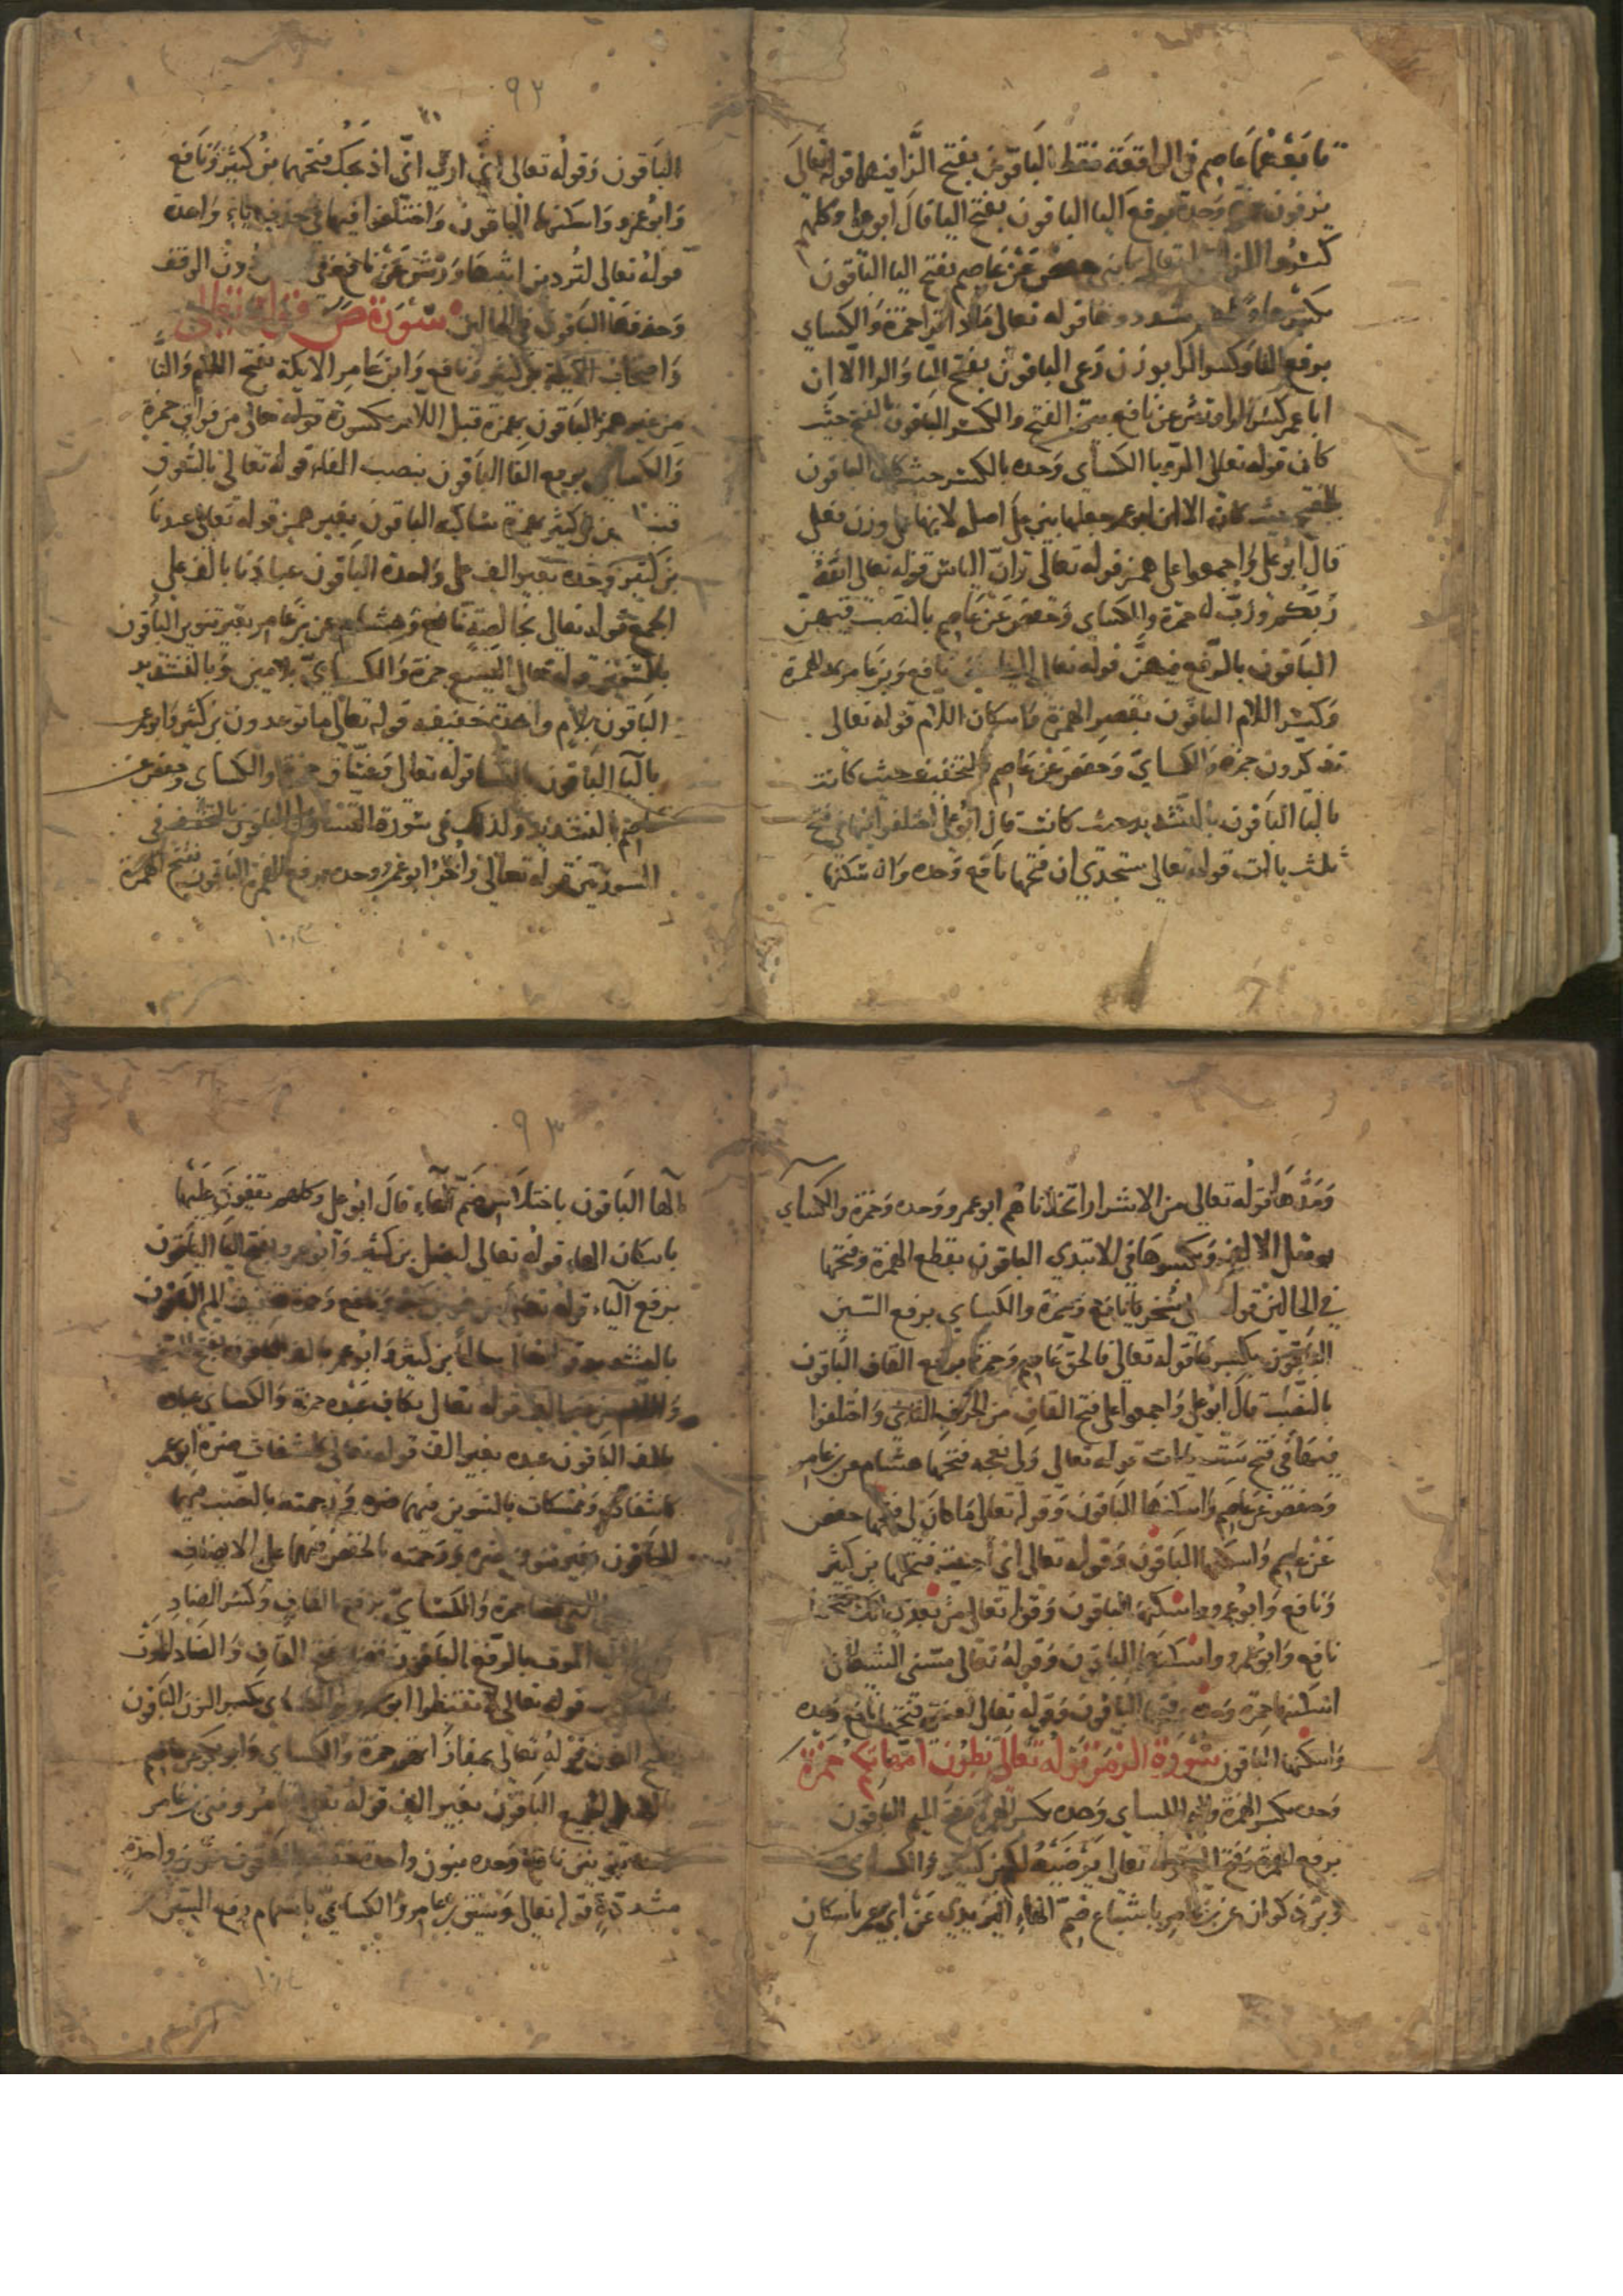 تابعهما عاصم في الواقعة فقط الباقون بفتح الزا فيهما قوله تعالى
يزفون حمزة وحده برفع اليا الباقون بفتح اليا قال ابو علي وكلهم
كسروا الزا قوله تعالى يا بني حفص عن عاصم بفتح اليا الباقون
بكسرها وكلهم شددوها قوله تعالى ماذا ترا حمزة والكساي
برفع التا وكسر الرا بوزن الباقون بفتح التا والرا الا ان
ابا عمر كسر الرا وورش عن نافع بين الفتح والكسر الباقون بالفتح حيث
كان قوله تعالى الرويا الكساي وحده بالكسر حيث كان الباقون
بالفتح حيث كان الا ان ابو عمر جعلها بين على اصله لانها على وزن فعلى
قال ابو علي واجمعوا على همز قوله تعالى وان الياس قوله تعالى الله
ربكم ورب له حمزة والكساي وحفص عن عاصم بالنصب فيهن
الباقون بالرفع فيهن قوله تعالى نافع وبن عامر بمد الهمزة
وكسر اللام الباقون بقصر الهمزة واسكان اللام قوله تعالى
تذكرون حمزة والكساي وحفص عن عاصم بالتخفيف حيث كانت
باليا الباقون بالتشديد حيث كانت قال ابو علي اختلفوا فيها في فتح
ثلث ياات قوله تعالى ستجدني ان فتحها نافع وحده واسكنها
٩٣
الباقون وقوله تعالى اني ارى اني اذبحك فتحهما بن كثير ونافع
وابو عمرو واسكنها الباقون واختلفوا فيها في حذف ياء واحدة
قوله تعالى لتردين اثبتها ورش عن نافع في دون الوقف
وحذفها الباقون في الحالين سورة ص قوله تعالى
واصحاب الايكة بن كثير ونافع وابن عامر الايكة بفتح اللام والتا
من غير همز الباقون بهمزة قبل اللام مكسورة قوله تعالى من فواق حمزة
والكساي برفع الفا الباقون بنصب الفاء قوله تعالى بالسوق
قنبل عن بن كثير بهمزة ساكنة الباقون بغير همز قوله تعالى عبدنا
بن كثير وحده بغير الف على واحدة الباقون عبادنا بالف على
الجمع قوله تعالى بخالصة نافع وهشام عن بن عامر بغير تنوين الباقون
بالتنوين قوله تعالى اليسع حمزة والكساي بلامين وبالتشديد
الباقون بلام واحدة خفيفه قوله تعالى ما توعدون بن كثير وابو عمر
باليا الباقون بالتا قوله تعالى وغساق حمزة والكساي وحفص عن
عاصم بالتشديد وكذلك في سورة التساول الباقون بالتخفيف في
السورتين قوله تعالى واخر ابو عمرو وحده برفع الهمزة الباقون بفتح الهمزة
ومدها قوله تعالى من الاشرار اتخذناهم ابو عمرو وحده وحمزة والكساي
بوصل الالف وبكسرها في الابتدي الباقون بقطع الهمزة وفتحها
في الحالين قوله سخريا نافع وحمزة والكساي برفع السين
الباقون بكسرها قوله تعالى فالحق عاصم وحمزة برفع القاف الباقون
بالنصب قال ابو علي واجمعوا على فتح القاف من الحرف الثاني واختلفوا
فيها في فتح ست ياات قوله تعالى ولي نعجه فتحها هشام عن بن عامر
وحفص عن عاصم واسكنها الباقون وقوله تعالى ما كان لي فتحها حفص
عن عاصم واسكنها الباقون وقوله تعالى اني احببت فتحها بن كثير
ونافع وابو عمرو واسكنها الباقون وقوله تعالى من بعدي انك فتحها
نافع وابو عمرو واسكنها الباقون وقوله تعالى مسني الشيطان
اسكنها حمزة وحده وفتحها الباقون وقوله تعالى لعنتي فتحها نافع وحده
واسكنها الباقون سورة الزمر قوله تعالى بطون امهاتكم حمزة
وحده بكسر الهمزة والميم الكساي وحده بكسر الهمزة وفتح الميم الباقون
برفع الهمزة وفتح الميم قوله تعالى يرضه لكم بن كثير والكساي
وبن ذكوان عن بن عامر باشباع ضم الهاء اليزيدي عن ابي عمر باسكان
٩٣
الها الباقون باختلاس ضم الهاء قال ابو علي وكلهم يقفون عليها
باسكان الهاء قوله تعالى ليضل بن كثير وابو عمرو بفتح اليا الباقون
برفع الياء قوله تعالى امن هو بن كثير ونافع وحمزة بتخفيف الميم الباقون
بالتشديد قوله تعالى سالما بن كثير وابو عمر بالف الباقون بفتح السين
واللام من غير الف قوله تعالى بكاف عبده حمزة والكساي عباده
بالف الباقون عبده بغير الف قوله تعالى كاشفات ضره ابو عمر
كاشفات وممسكات بالتنوين فيهما ضره ورحمته بالنصب فيهما
الباقون بغير تنوين ضره ورحمته بالخفض فيهما على الاضافه
قضى حمزة والكساي برفع القاف وكسر الضاد
الموت بالرفع الباقون بفتح القاف والضاد الموت
قوله تعالى لا تقنطوا ابو عمرو والكساي بكسر النون الباقون
بفتح النون قوله تعالى بمفازاتهم حمزة والكساي وابو بكر عن عاصم
بالف على الجميع الباقون بغير الف قوله تعالى تامروني بن عامر
بنونين نافع وحده بنون واحدة خفيفة الباقون بنون واحدة
مشددة قوله تعالى وسيق بن عامر والكساي باشمام رفع السين